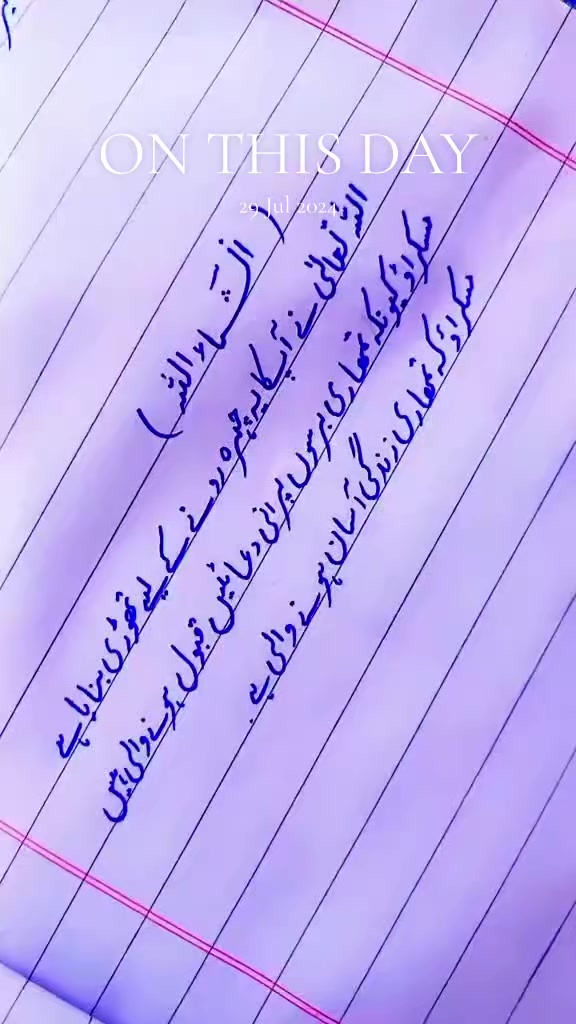 ON THIS DAY
29 Jul 2024
( انشَاءاللہ )
اللہ تعالٰی نے آپ کا یہ چہرہ رونے کے لیے تھوڑی بنایا ہے
مسکراؤ کیونکہ تمھاری برسوں پرانی دعائیں قبول ہونے والی ہیں
مسکراؤ کہ تمھاری زندگی آسان ہونے والی ہے۔